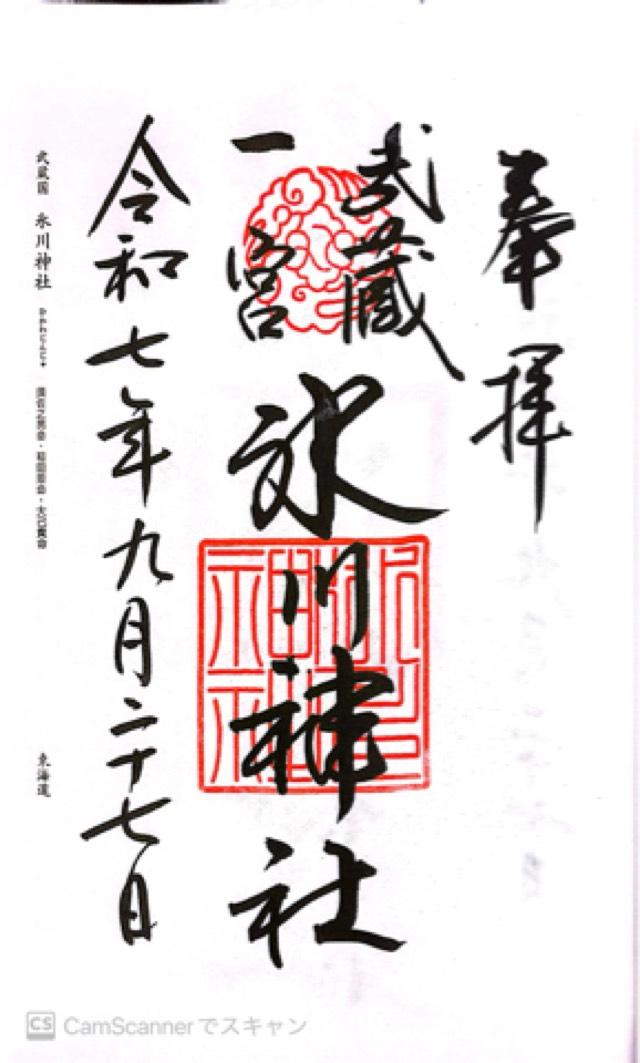 奉拝
武蔵
一宮
氷川神社
令和七年九月二十七日
武蔵国 氷川神社 ひかわじんじゃ 須佐之男命・稲田姫命・大己貴命 東海道
CamScannerでスキャン